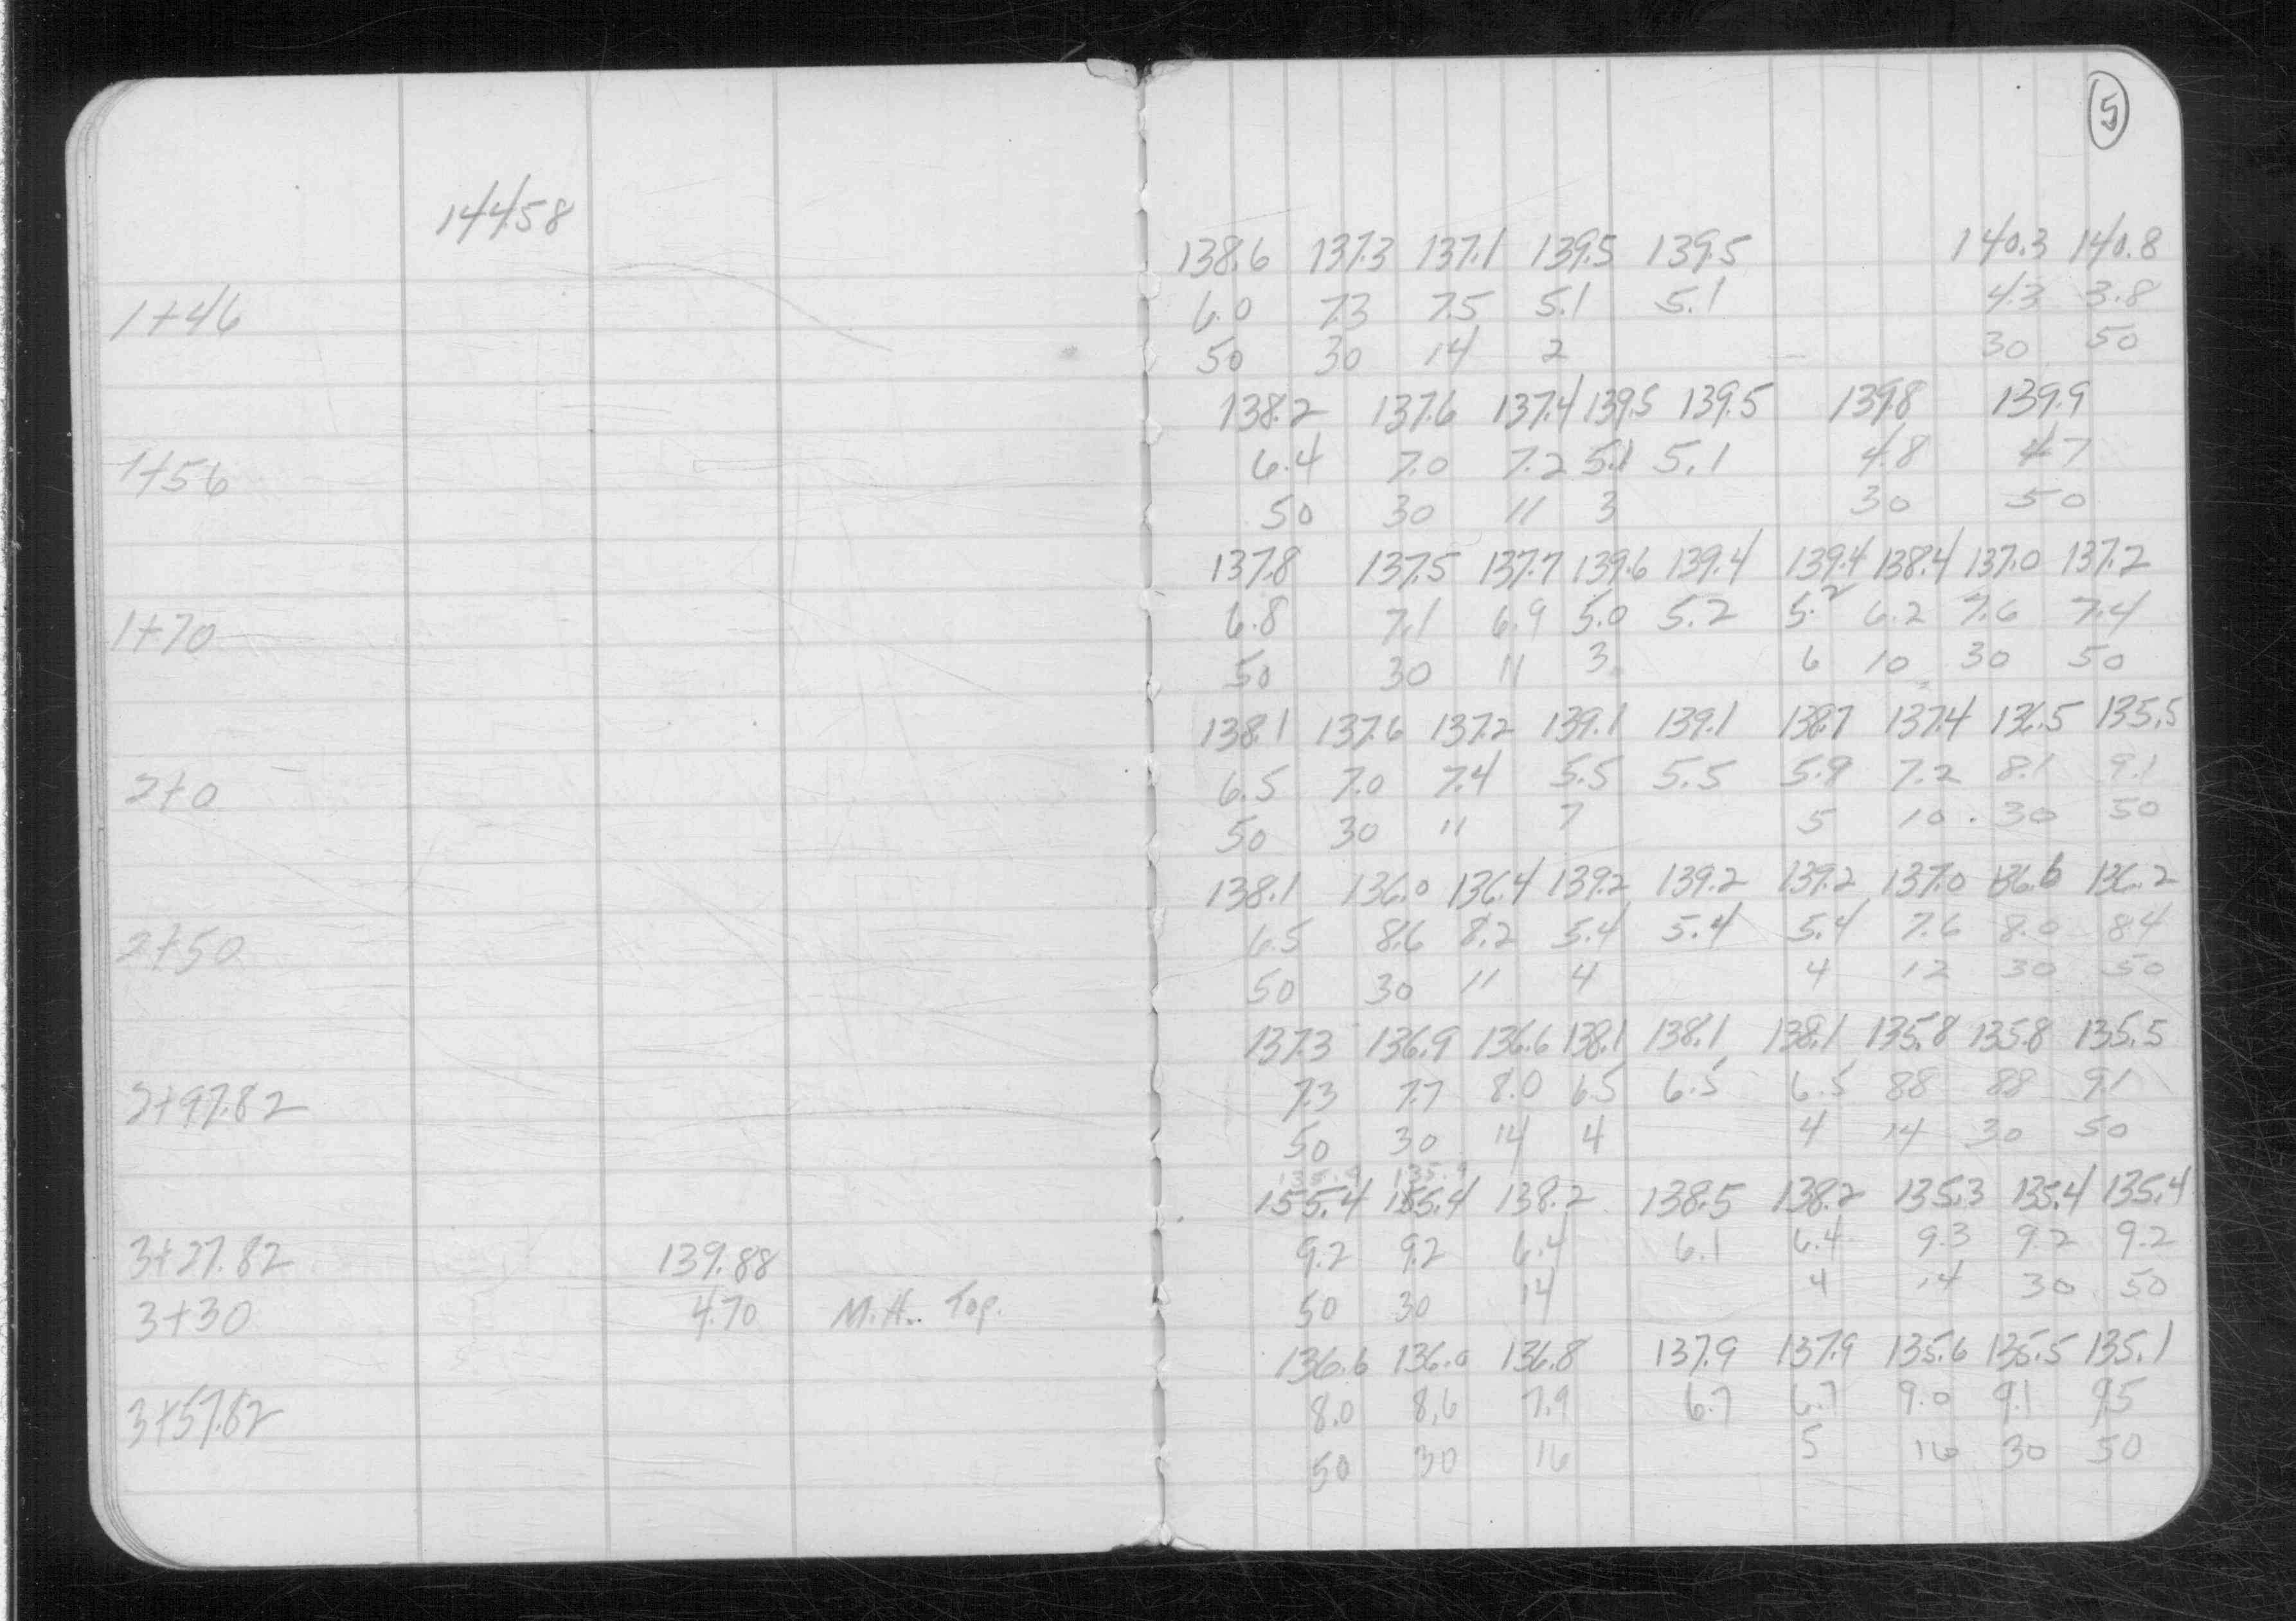 5
144.58
138.6 137.3 137.1 139.5 139.5 140.3 140.8
1+46 6.0 7.3 7.5 5.1 5.1 4.3 3.8
50 30 14 2 30 50
138.2 137.6 137.4 139.5 139.5 139.8 139.9
1+56 6.4 7.0 7.2 5.1 5.1 4.8 4.7
50 30 11 3 30 50
137.8 137.5 137.7 139.6 139.4 139.4 138.4 137.0 137.2
1+70 6.8 7.1 6.9 5.0 5.2 5.2 6.2 7.6 7.4
50 30 11 3 6 10 30 50
138.1 137.6 137.2 139.1 139.1 138.7 137.4 136.5 135.5
2+0 6.5 7.0 7.4 5.5 5.5 5.9 7.2 8.1 9.1
50 30 11 7 5 10 30 50
138.1 136.0 136.4 139.2 139.2 139.2 137.0 136.6 136.2
2+50 6.5 8.6 8.2 5.4 5.4 5.4 7.6 8.0 8.4
50 30 11 4 4 12 30 50
137.3 136.9 136.6 138.1 138.1 138.1 135.8 135.8 135.5
2+97.82 7.3 7.7 8.0 6.5 6.5 6.5 8.8 8.8 9.1
50 30 14 4 4 14 30 50
155.4 155.4 138.2 138.5 138.2 135.3 135.4 135.4
3+27.82 139.88 9.2 9.2 6.4 6.1 6.4 9.3 9.2 9.2
3+30 4.70 M.H. Top. 50 30 14 4 14 30 50
136.6 136.0 136.8 137.9 137.9 135.6 135.5 135.1
3+57.82 8.0 8.6 7.9 6.7 6.7 9.0 9.1 9.5
50 30 16 5 16 30 50